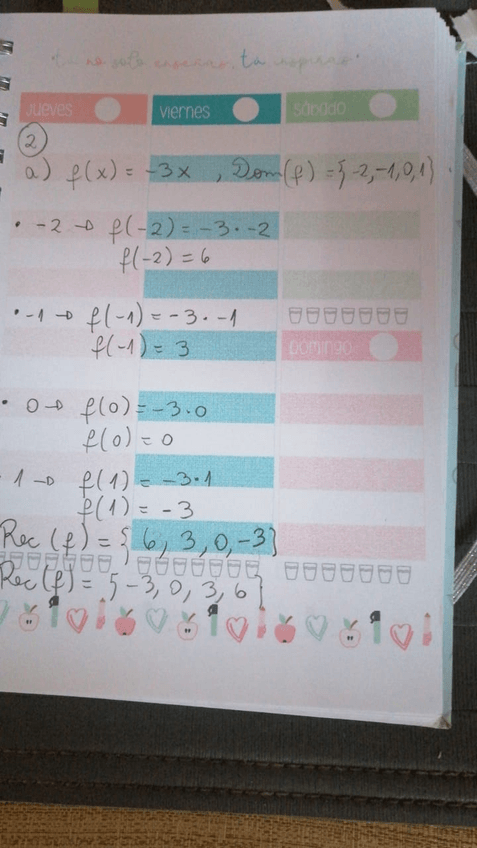 tu no solo enseñas, tu inspiras
jueves
viernes
sábado
2
a) f(x) = -3x , Dom(f) = {-2,-1,0,1}
• -2 → f(-2) = -3 · -2
f(-2) = 6
• -1 → f(-1) = -3 · -1
f(-1) = 3
DOMINGO
• 0 → f(0) = -3·0
f(0) = 0
· 1 → f(1) = -3·1
f(1) = -3
Rec(f) = {6, 3, 0, -3}
Rec(f) = {-3, 0, 3, 6}